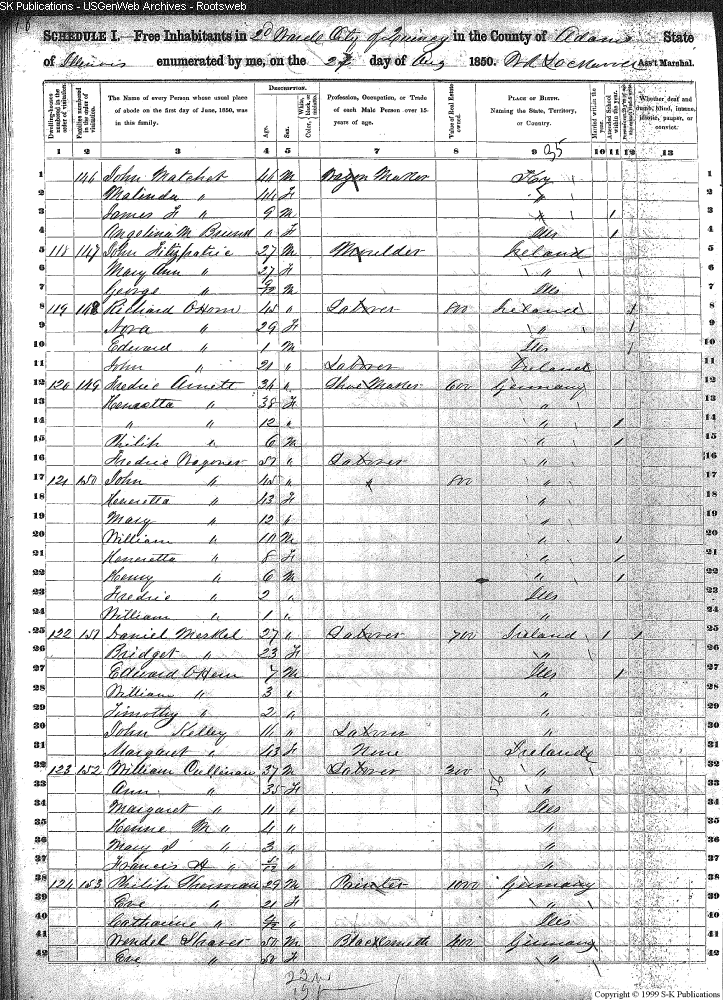 SK Publications - USGenWeb Archives - Rootsweb
SCHEDULE I.—Free Inhabitants in 2d Ward City of Quincy in the County of Adams State
of Illinois enumerated by me, on the day of Aug 1850. Ass't Marshal.
Dwelling-houses numbered in the order of visitation.
Families numbered in the order of visitation.
The Name of every Person whose usual place of abode on the first day of June, 1850, was in this family.
DESCRIPTION.
Age.
Sex.
Profession, Occupation, or Trade of each Male Person over 15 years of age.
Value of Real Estate owned.
PLACE OF BIRTH.
Naming the State, Territory, or Country.
Married within the year.
Attended School within the year.
Whether deaf and dumb, blind, insane, idiotic, pauper, or convict.
1 2 3 4 5 6 7 8 9 10 11 12 13
35
1 146 John Matchet 46 M Wagon Maker Ky 1
2 Malinda " 44 F " 2
3 James F " 9 M 1 3
4 Angelina M F Ills 1 4
5 118 147 John Fitzpatric 27 M Moulder Ireland 5
6 Mary Ann " 27 F " 6
7 George " M Ills 7
8 119 148 Richard OHern 45 " Laborer 800 Ireland 1 8
9 Nora " 29 F " 1 9
10 Edward " 1 M Ills 1 10
11 John " 21 " Laborer Ireland 11
12 120 149 Fredric Arnett 34 " Shoe Maker 600 Germany 12
13 Henrietta " 38 F " 13
14 " " 12 " " 1 14
15 Philip " 6 M " 1 15
16 Fredric Wagoner 57 " Laborer " 16
17 121 150 John " 45 " " 800 " 17
18 Henrietta " 43 F " 18
19 Mary " 12 " " 19
20 William " 10 M " 1 20
21 Henrietta " 8 F " 1 21
22 Henry " 6 M " 1 22
23 Fredric " 2 " Ills 23
24 William " 1 " " 24
25 122 151 Daniel Meskel 27 " Laborer 700 Ireland 1 1 25
26 Bridget " 23 F " 26
27 Edward OHern 7 M Ills 1 27
28 William " 3 " " 28
29 Timothy " 2 " " 29
30 John Kelley " Laborer " 30
31 Margaret " 43 F None Ireland 31
32 123 152 William Cullinan 37 M Laborer 300 " 32
33 Ann " 35 F " 33
34 Margaret " 11 " Ills 34
35 M " 4 " " 35
36 Mary " 3 " " 36
37 Francis H " " " 37
38 124 153 Philip Sherman 29 M 1000 Germany 38
39 Eve " 21 F " 39
40 Catharine " " Ills 40
41 Wendel 50 M Blacksmith Germany 41
42 Eve " 50 F " 42
Copyright © 1999 S-K Publications